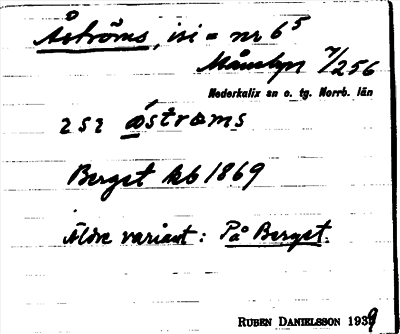 Åströms, isi = nr 6⁵
Månsbyn 7/256
Nederkalix sn o. tg. Norrb. län
252 åstrøms
Berget kb 1869
Äldre variant: På Berget.
RUBEN DANIELSSON 1939